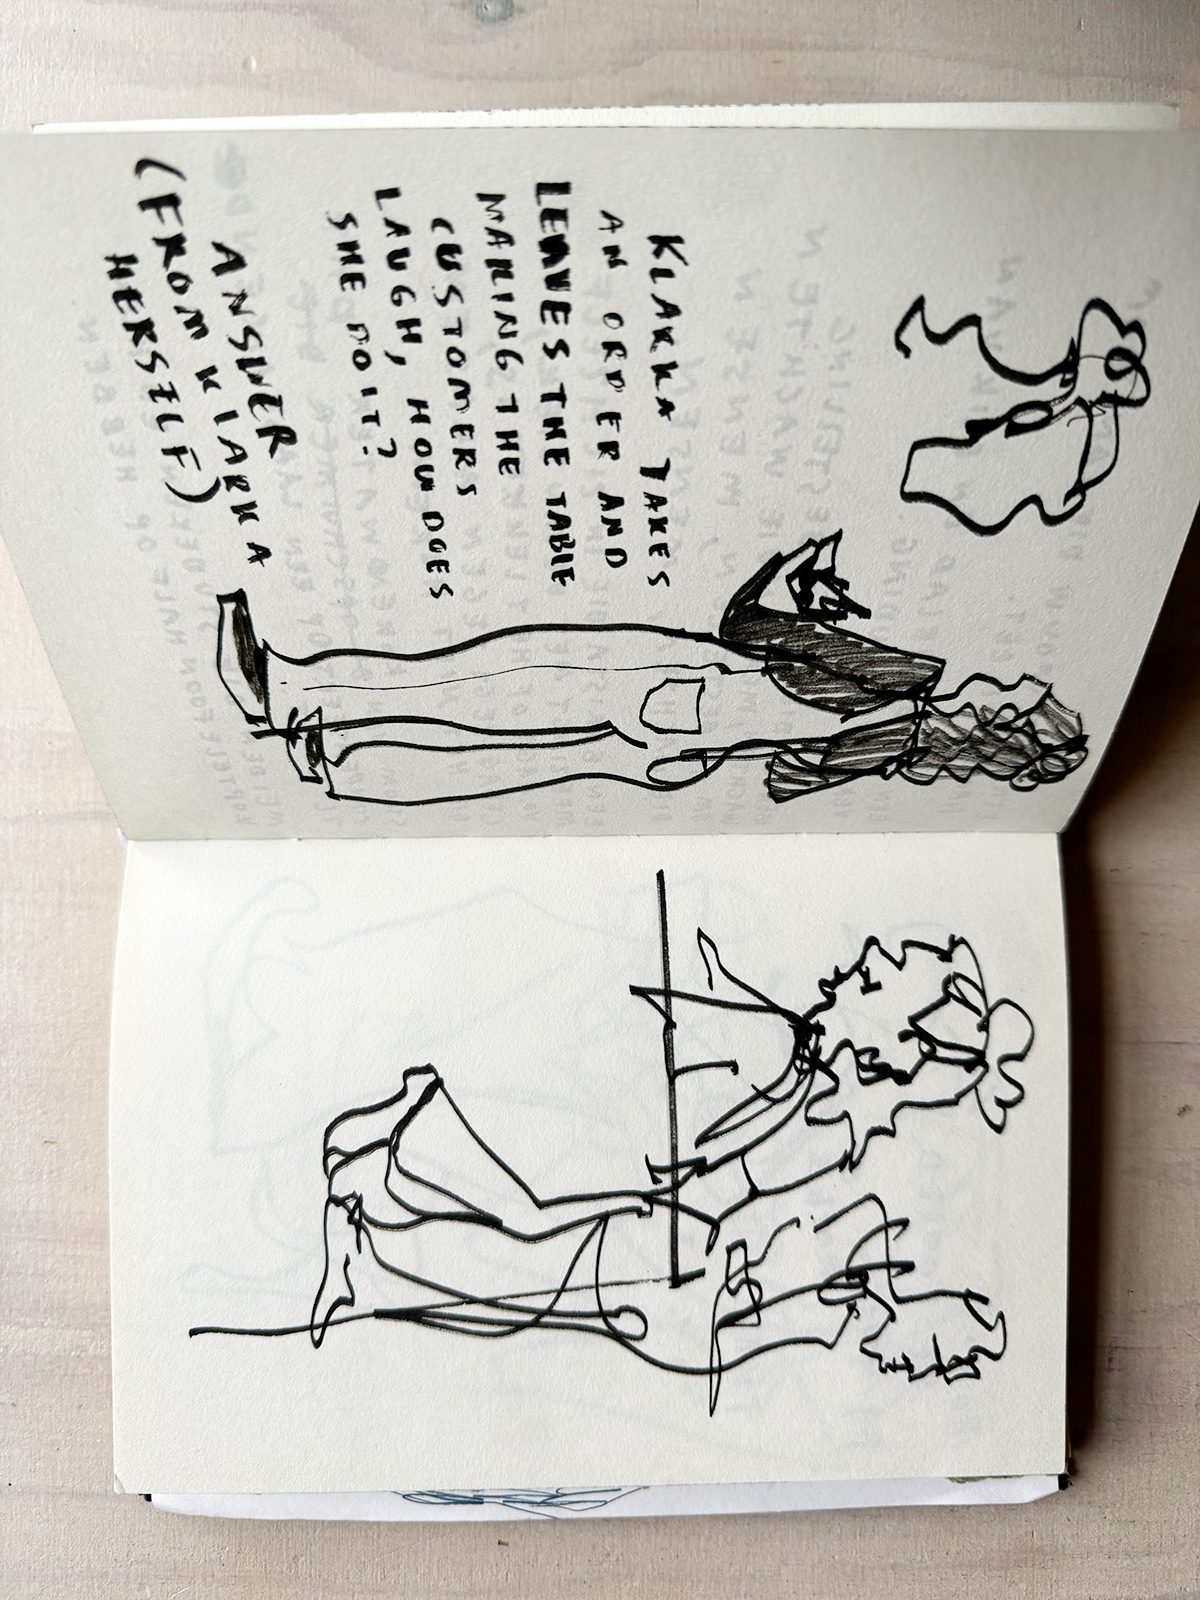 KLARKA TAKES
AN ORDER AND
LEAVES THE TABLE
MAKING THE
CUSTOMERS
LAUGH, HOW DOES
SHE DO IT?
ANSWER
(FROM KLARKA
HERSELF)